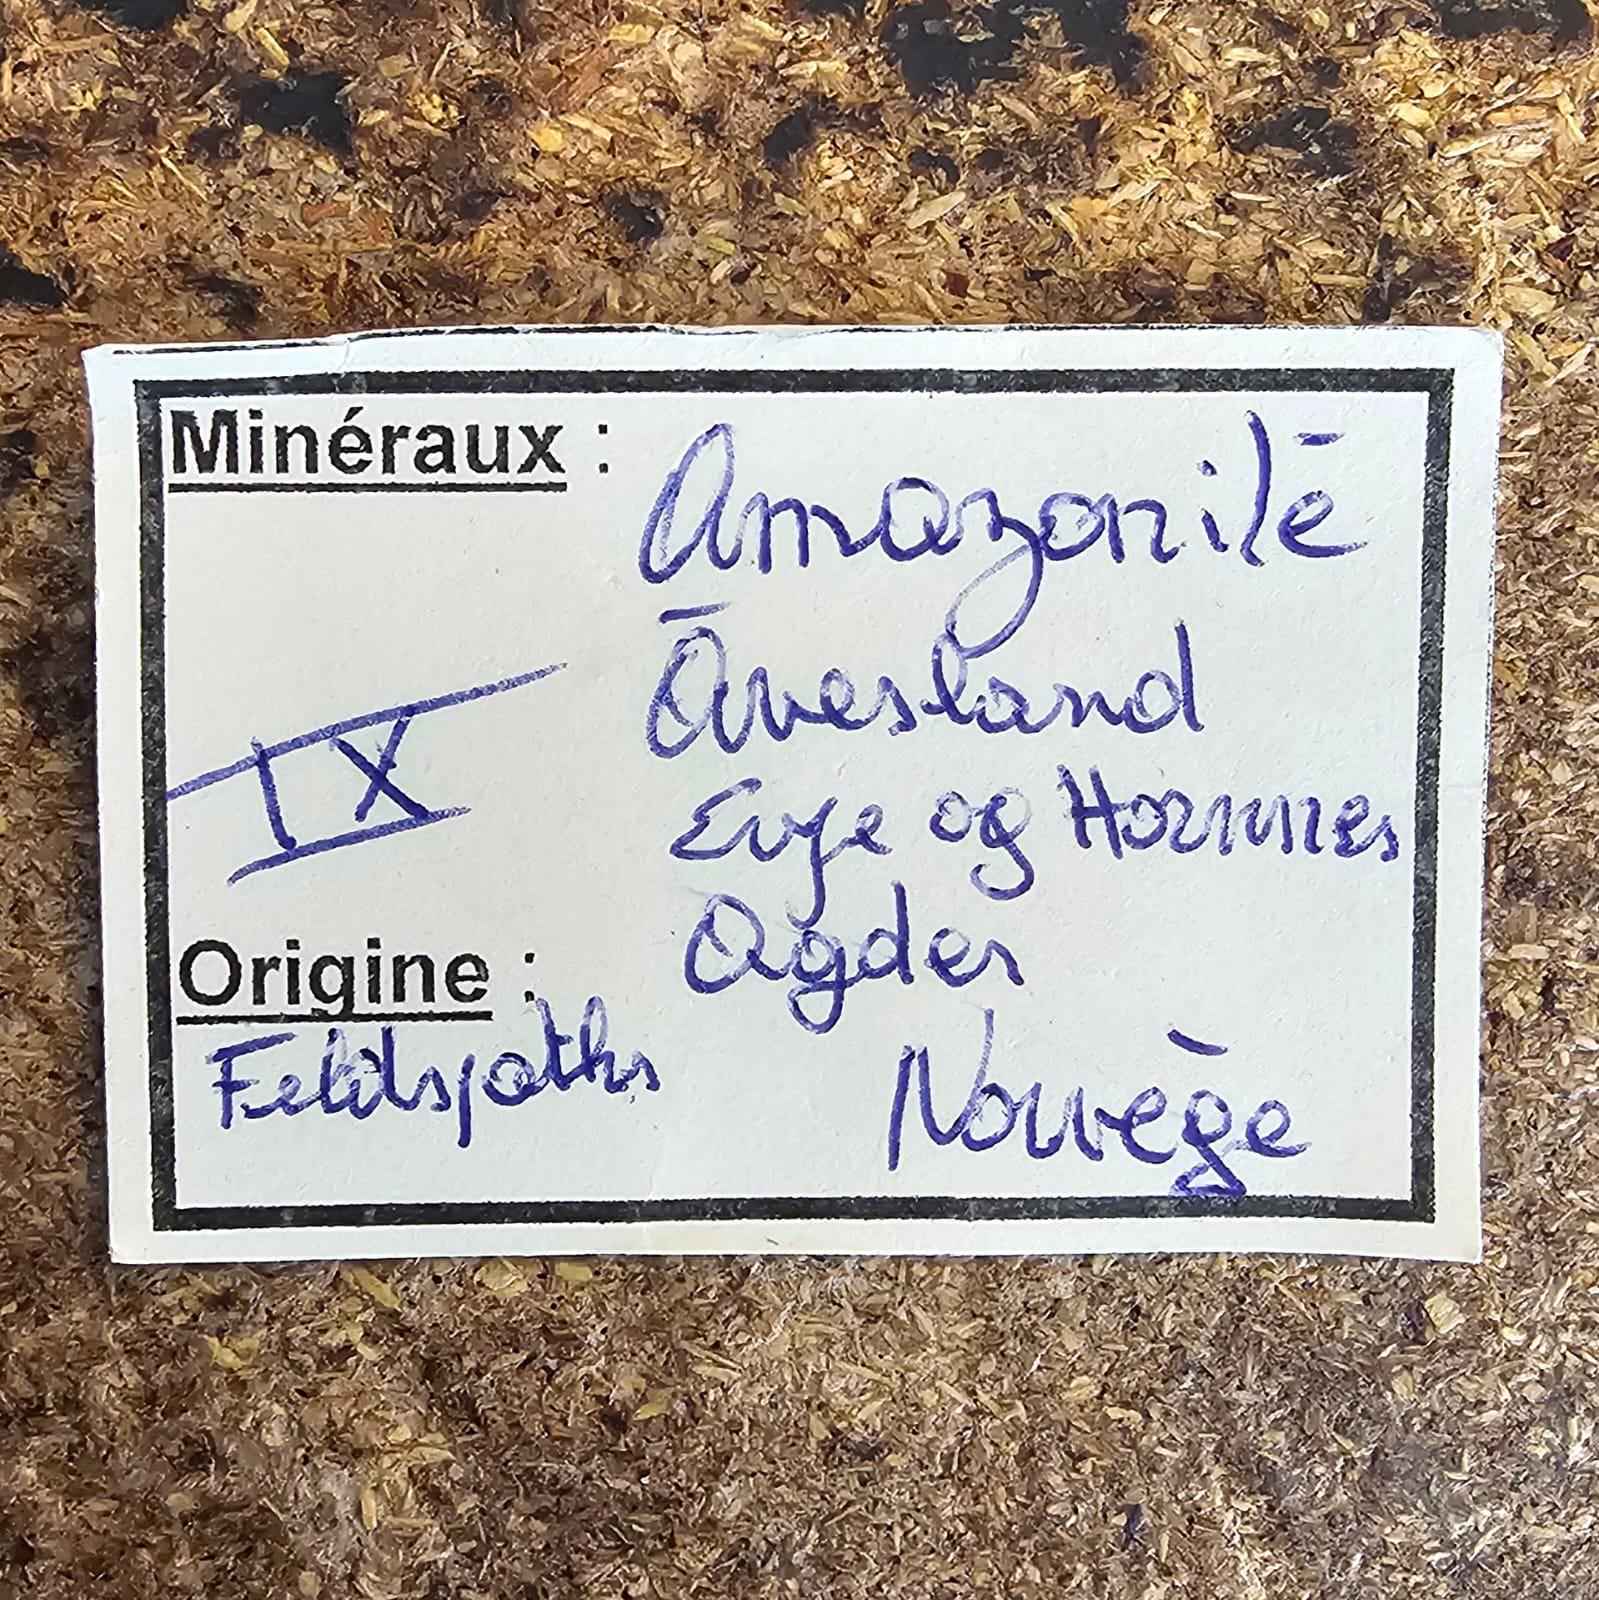 Minéraux : Amazonite
Āvesland
IX
Evje og Hornnes
Agder
Origine :
Feldspaths
Norvège